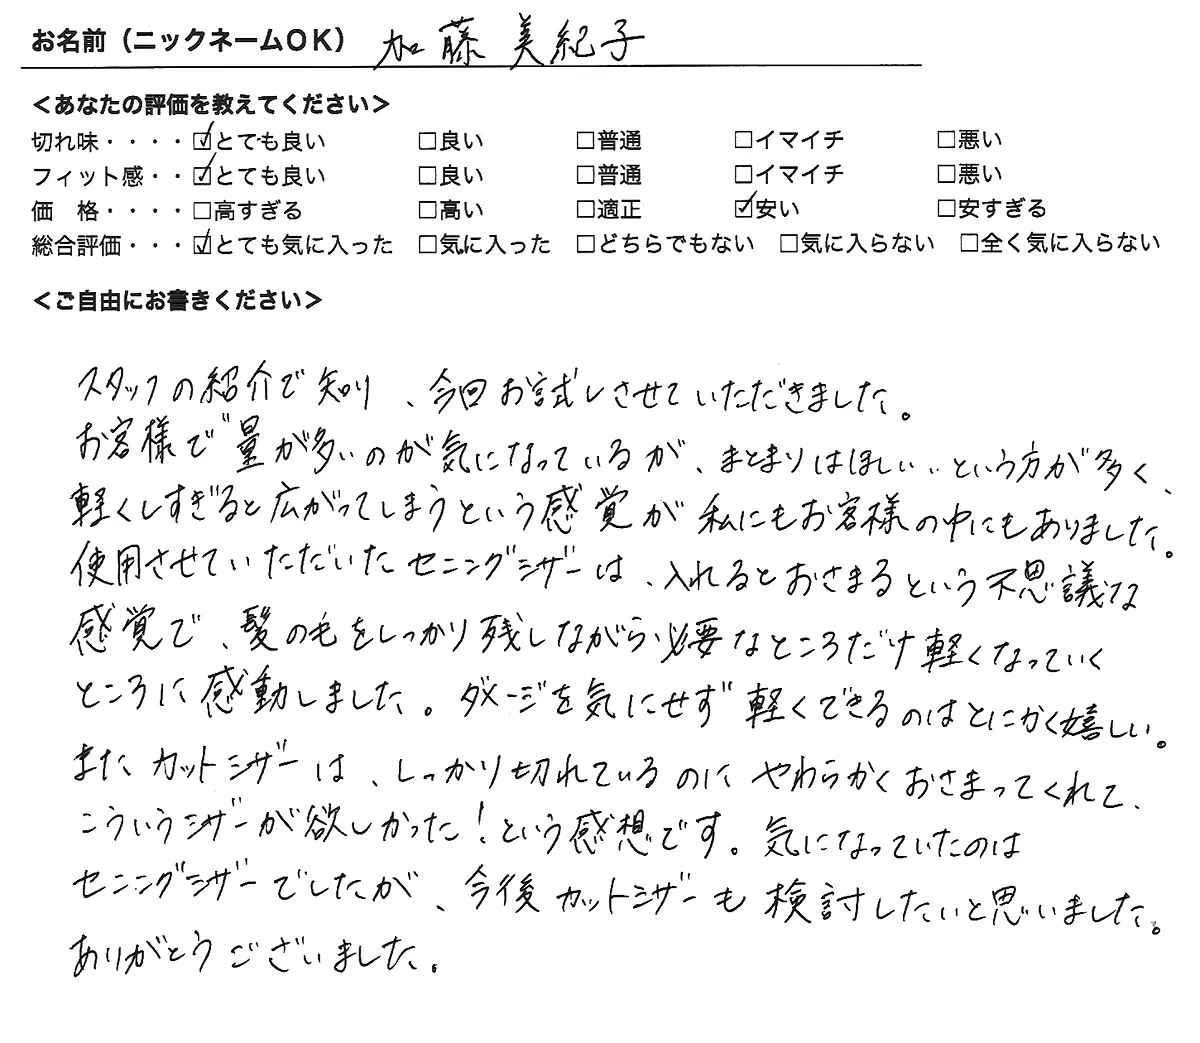 お名前（ニックネームOK） 加藤 美紀子
＜あなたの評価を教えてください＞
切れ味・・・・☑とても良い □良い □普通 □イマイチ □悪い
フィット感・・☑とても良い □良い □普通 □イマイチ □悪い
価　格・・・・□高すぎる □高い □適正 ☑安い □安すぎる
総合評価・・・☑とても気に入った □気に入った □どちらでもない □気に入らない □全く気に入らない
＜ご自由にお書きください＞
スタッフの紹介で知り、今回お試しさせていただきました。
お客様で量が多いのが気になっているが、まとまりはほしい‥という方が多く、
軽くしすぎると広がってしまうという感覚が私にもお客様の中にもありました。
使用させていただいたセニングシザーは、入れるとおさまるという不思議な
感覚で、髪の毛をしっかり残しながら必要なところだけ軽くなっていく
ところに感動しました。ダメージを気にせず軽くできるのはとにかく嬉しい。
またカットシザーは、しっかり切れているのにやわらかくおさまってくれて、
こういうシザーが欲しかった！という感想です。気になっていたのは
セニングシザーでしたが、今後カットシザーも検討したいと思いました。
ありがとうございました。